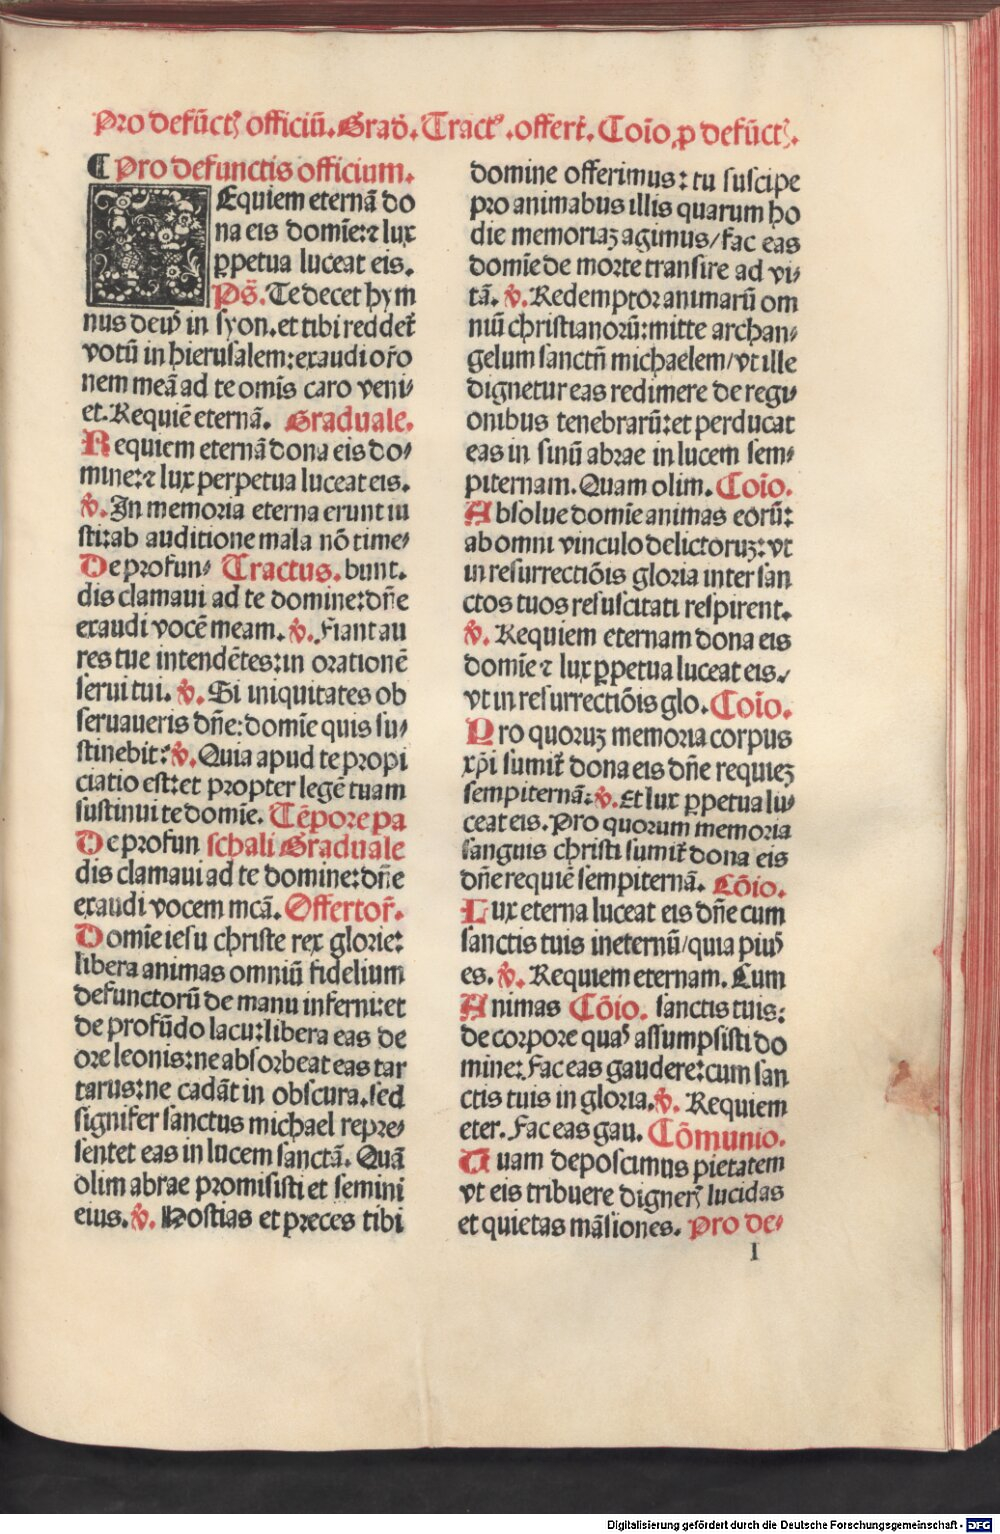 Pro defūctꝭ officiū. Grad̄. Tractꝰ. offert̄. Coīo ꝓ defūctꝭ.
¶ Pro defunctis officium.
REquiem eternā do
na eis domīe: ⁊ lux
ꝑpetua luceat eis.
Ps̄. Te decet hym
nus deꝰ in syon. et tibi reddet̄
votū in hierusalem: exaudi or̄o
nem meā ad te omīs caro veni⸗
et. Requiē eternā. Graduale.
Requiem eternā dona eis do⸗
mine: ⁊ lux perpetua luceat eis.
℣. In memoria eterna erunt iu
sti: ab auditione mala nō time⸗
De profun⸗ Tractus. bunt.
dis clamaui ad te domine: dn̄e
exaudi vocē meam. ℣. Fiant au
res tue intendētes: in orationē
serui tui. ℣. Si iniquitates ob
seruaueris dn̄e: domīe quis su⸗
stinebit: ℣. Quia apud te propi
ciatio est: et propter legē tuam
sustinui te domīe. Tēpore pa
De profun schali Graduale
dis clamaui ad te domine: dn̄e
exaudi vocem meā. Offertor̄.
Domīe iesu christe rex glorie:
libera animas omniū fidelium
defunctorū de manu inferni: et
de profūdo lacu: libera eas de
ore leonis: ne absorbeat eas tar
tarus: ne cadāt in obscura. sed
signifer sanctus michael repre⸗
sentet eas in lucem sanctā. Quā
olim abrae promisisti et semini
eius. ℣. Hostias et preces tibi
domine offerimus: tu suscipe
pro animabus illis quarum ho
die memoriaꝫ agimus/ fac eas
domīe de morte transire ad vi⸗
tā. ℣. Redemptor animarū om
niū christianorū: mitte archan⸗
gelum sanctū michaelem/ vt ille
dignetur eas redimere de regi⸗
onibus tenebrarū: et perducat
eas in sinū abrae in lucem sem⸗
piternam. Quam olim. Coīo.
Absolue domīe animas eorū:
ab omni vinculo delictoruꝫ: vt
in resurrectiōis gloria inter san
ctos tuos resuscitati respirent.
℣. Requiem eternam dona eis
domīe ⁊ lux ꝑpetua luceat eis./
vt in resurrectiōis glo. Coīo.
Pro quoruꝫ memoria corpus
xp̄i sumit̄ dona eis dn̄e requieꝫ
sempiternā: ℣. Et lux ꝑpetua lu⸗
ceat eis. Pro quorum memoria
sanguis christi sumit̄ dona eis
dn̄e requiē sempiternā. Cōio.
Lux eterna luceat eis dn̄e cum
sanctis tuis ineternū/ quia piuꝰ
es. ℣. Requiem eternam. Cum
Animas Cōio. sanctis tuis:
de corpore quaꝰ assumpsisti do
mine: fac eas gaudere: cum san
ctis tuis in gloria. ℣. Requiem
eter. Fac eas gau. Cōmunio.
Quam deposcimus pietatem
vt eis tribuere dignerꝭ lucidas
et quietas māsiones. Pro de⸗
I
Digitalisierung gefördert durch die Deutsche Forschungsgemeinschaft - DFG